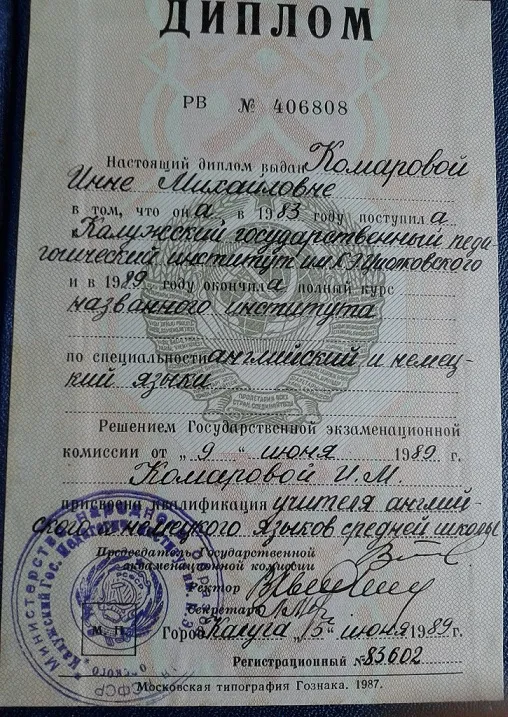 ДИПЛОМ
РВ № 406808
Настоящий диплом выдан Комаровой
Инне Михайловне
в том, что она в 1983 году поступила
в Калужский государственный педа-
гогический институт им. К.Э.Циолковского
и в 1989 году окончила полный курс
названного института
по специальности английский и немец-
кий языки
Решением Государственной экзаменационной
комиссии от „9“ июня 1989 г.
Комаровой И.М.
присвоена квалификация учителя англий-
ского и немецкого языков средней школы
Председатель Государственной
экзаменационной комиссии
Ректор
Секретарь
М. П.
Город Калуга „15“ июня 1989 г.
Регистрационный № 83602
Московская типография Гознака. 1987.